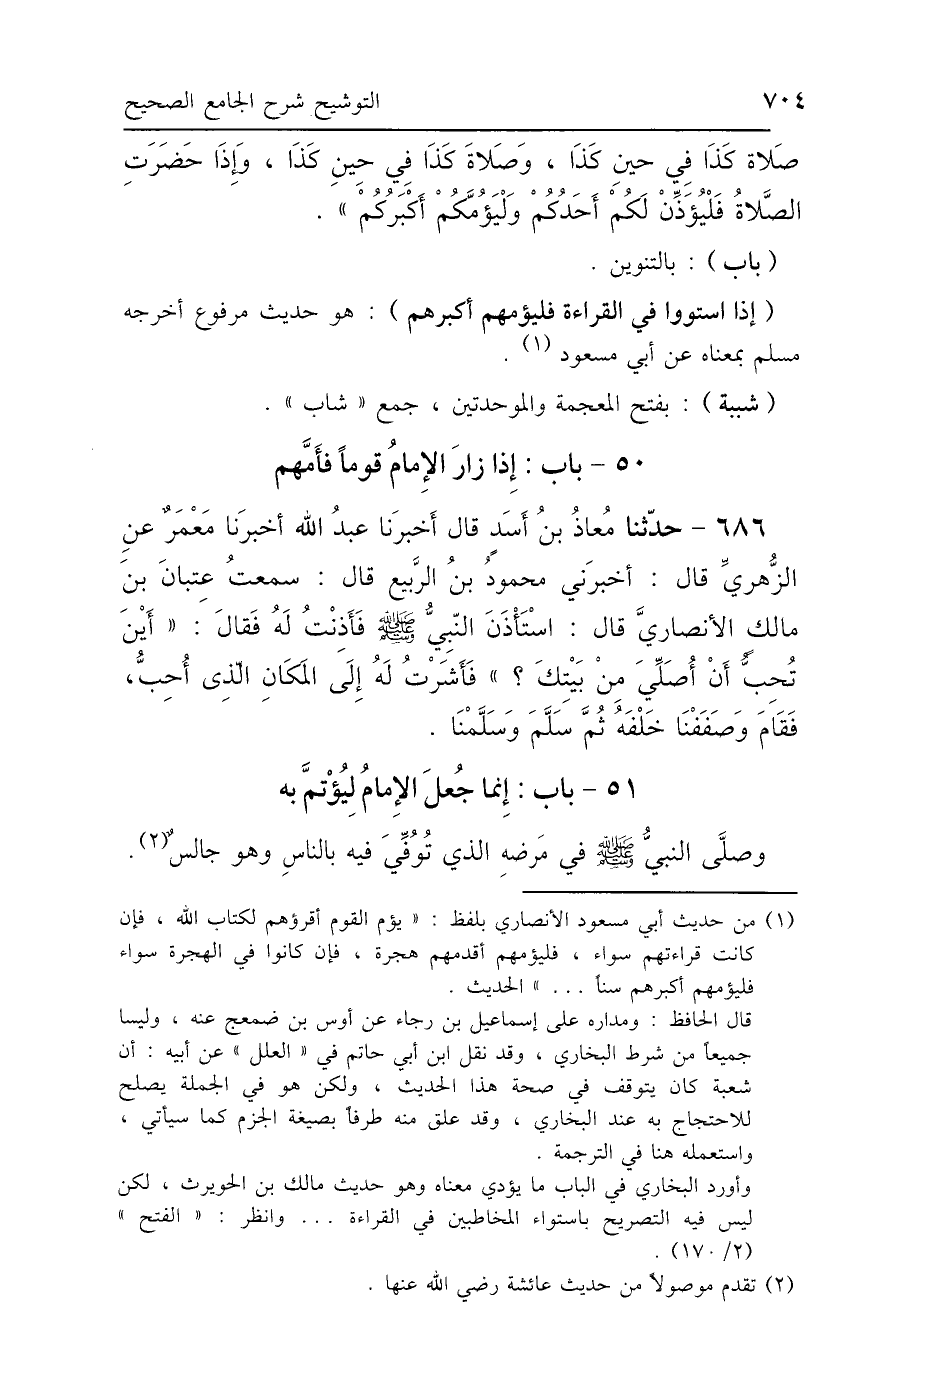 ٧٠٤ التوشيح شرح الجامع الصحيح
صَلاة كَذَا فِي حينِ كَذَا ، وَصَلاةَ كَذَا فِي حِينِ كَذَا ، وَإِذَا حَضَرَت
الصَّلاةُ فَلْيُؤَذِّنْ لَكُمْ أَحَدُكُمْ وَلْيَؤُمَّكُمْ أَكْبَرُكُمْ » .
( باب ) : بالتنوين .
( إذا استووا في القراءة فليؤمهم أكبرهم ) : هو حديث مرفوع أخرجه
مسلم بمعناه عن أبي مسعود (١) .
( شببة ) : بفتح المعجمة والموحدتين ، جمع « شاب » .
٥٠ – باب : إذا زارَ الإمامُ قوماً فأمَّهم
٦٨٦ – حدّثنا مُعاذُ بنُ أَسَدٍ قال أخبرَنا عبدُ الله أخبرَنا مَعْمَرٌ عنِ
الزُّهريِّ قال : أخبرَني محمودُ بنُ الرَّبيعِ قال : سمعتُ عِتبانَ بنَ
مالكٍ الأنصاريَّ قال : اسْتَأْذَنَ النّبيُّ ﷺ فَأَذِنْتُ لَهُ فَقالَ : « أَيْنَ
تُحِبُّ أَنْ أُصَلِّيَ مِنْ بَيْتِكَ ؟ » فَأَشَرْتُ لَهُ إِلَى المَكَانِ الّذِى أُحِبُّ،
فَقَامَ وَصَفَفْنَا خَلْفَهُ ثُمَّ سَلَّمَ وَسَلَّمْنَا .
٥١ – باب : إنما جُعلَ الإمامُ لِيُؤْتمَّ به
وصلَّى النبيُّ ﷺ في مَرضهِ الذي تُوُفِّيَ فيه بالناسِ وهو جالسٌ(٢).
(١) من حديث أبي مسعود الأنصاري بلفظ : « يؤم القوم أقرؤهم لكتاب الله ، فإن
كانت قراءتهم سواء ، فليؤمهم أقدمهم هجرة ، فإن كانوا في الهجرة سواء
فليؤمهم أكبرهم سناً ... » الحديث .
قال الحافظ : ومداره على إسماعيل بن رجاء عن أوس بن ضمعج عنه ، وليسا
جميعاً من شرط البخاري ، وقد نقل ابن أبي حاتم في « العلل » عن أبيه : أن
شعبة كان يتوقف في صحة هذا الحديث ، ولكن هو في الجملة يصلح
للاحتجاج به عند البخاري ، وقد علق منه طرفاً بصيغة الجزم كما سيأتي ،
واستعمله هنا في الترجمة .
وأورد البخاري في الباب ما يؤدي معناه وهو حديث مالك بن الحويرث ، لكن
ليس فيه التصريح باستواء المخاطبين في القراءة ... وانظر : « الفتح »
(٢/ ١٧٠) .
(٢) تقدم موصولاً من حديث عائشة رضي الله عنها .